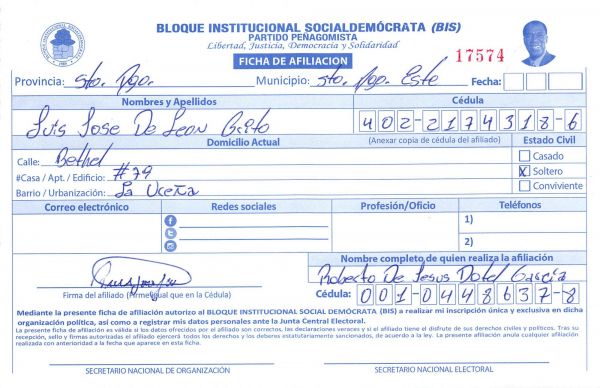 BLOQUE INSTITUCIONAL SOCIALDEMÓCRATA (BIS)
PARTIDO PEÑAGOMISTA
Libertad, Justicia, Democracia y Solidaridad
FICHA DE AFILIACION
17574
Provincia: Sto. Dgo. Municipio: Sto. Dgo. Este Fecha:
Nombres y Apellidos Cédula
Luis Jose De Leon Brito 402-2174318-6
Domicilio Actual (Anexar copia de cédula del afiliado) Estado Civil
Calle: Bethel Casado
#Casa / Apt. / Edificio: #79 X Soltero
Barrio / Urbanización: La Uceña Conviviente
Correo electrónico Redes sociales Profesión/Oficio Teléfonos
1)
2)
Nombre completo de quien realiza la afiliación
Roberto De Jesus Dotel Garcia
Firma del afiliado (Firme igual que en la Cédula) Cédula: 001-0448637-8
Mediante la presente ficha de afiliación autorizo al BLOQUE INSTITUCIONAL SOCIAL DEMÓCRATA (BIS) a realizar mi inscripción única y exclusiva en dicha
organización política, así como a registrar mis datos personales ante la Junta Central Electoral.
La presente ficha de afiliación será válida si los datos ofrecidos por el afiliado son correctos, las declaraciones veraces y si el afiliado tiene el disfrute de sus derechos civiles y políticos. Tras su
recepción, sello y firmas autorizadas el afiliado ejercerá todos los derechos y los deberes estatutariamente sancionados, de acuerdo a la ley. La presente afiliación anula cualquier afiliación
realizada con anterioridad a la fecha que aparece en esta ficha.
SECRETARIO NACIONAL DE ORGANIZACIÓN SECRETARIO NACIONAL ELECTORAL